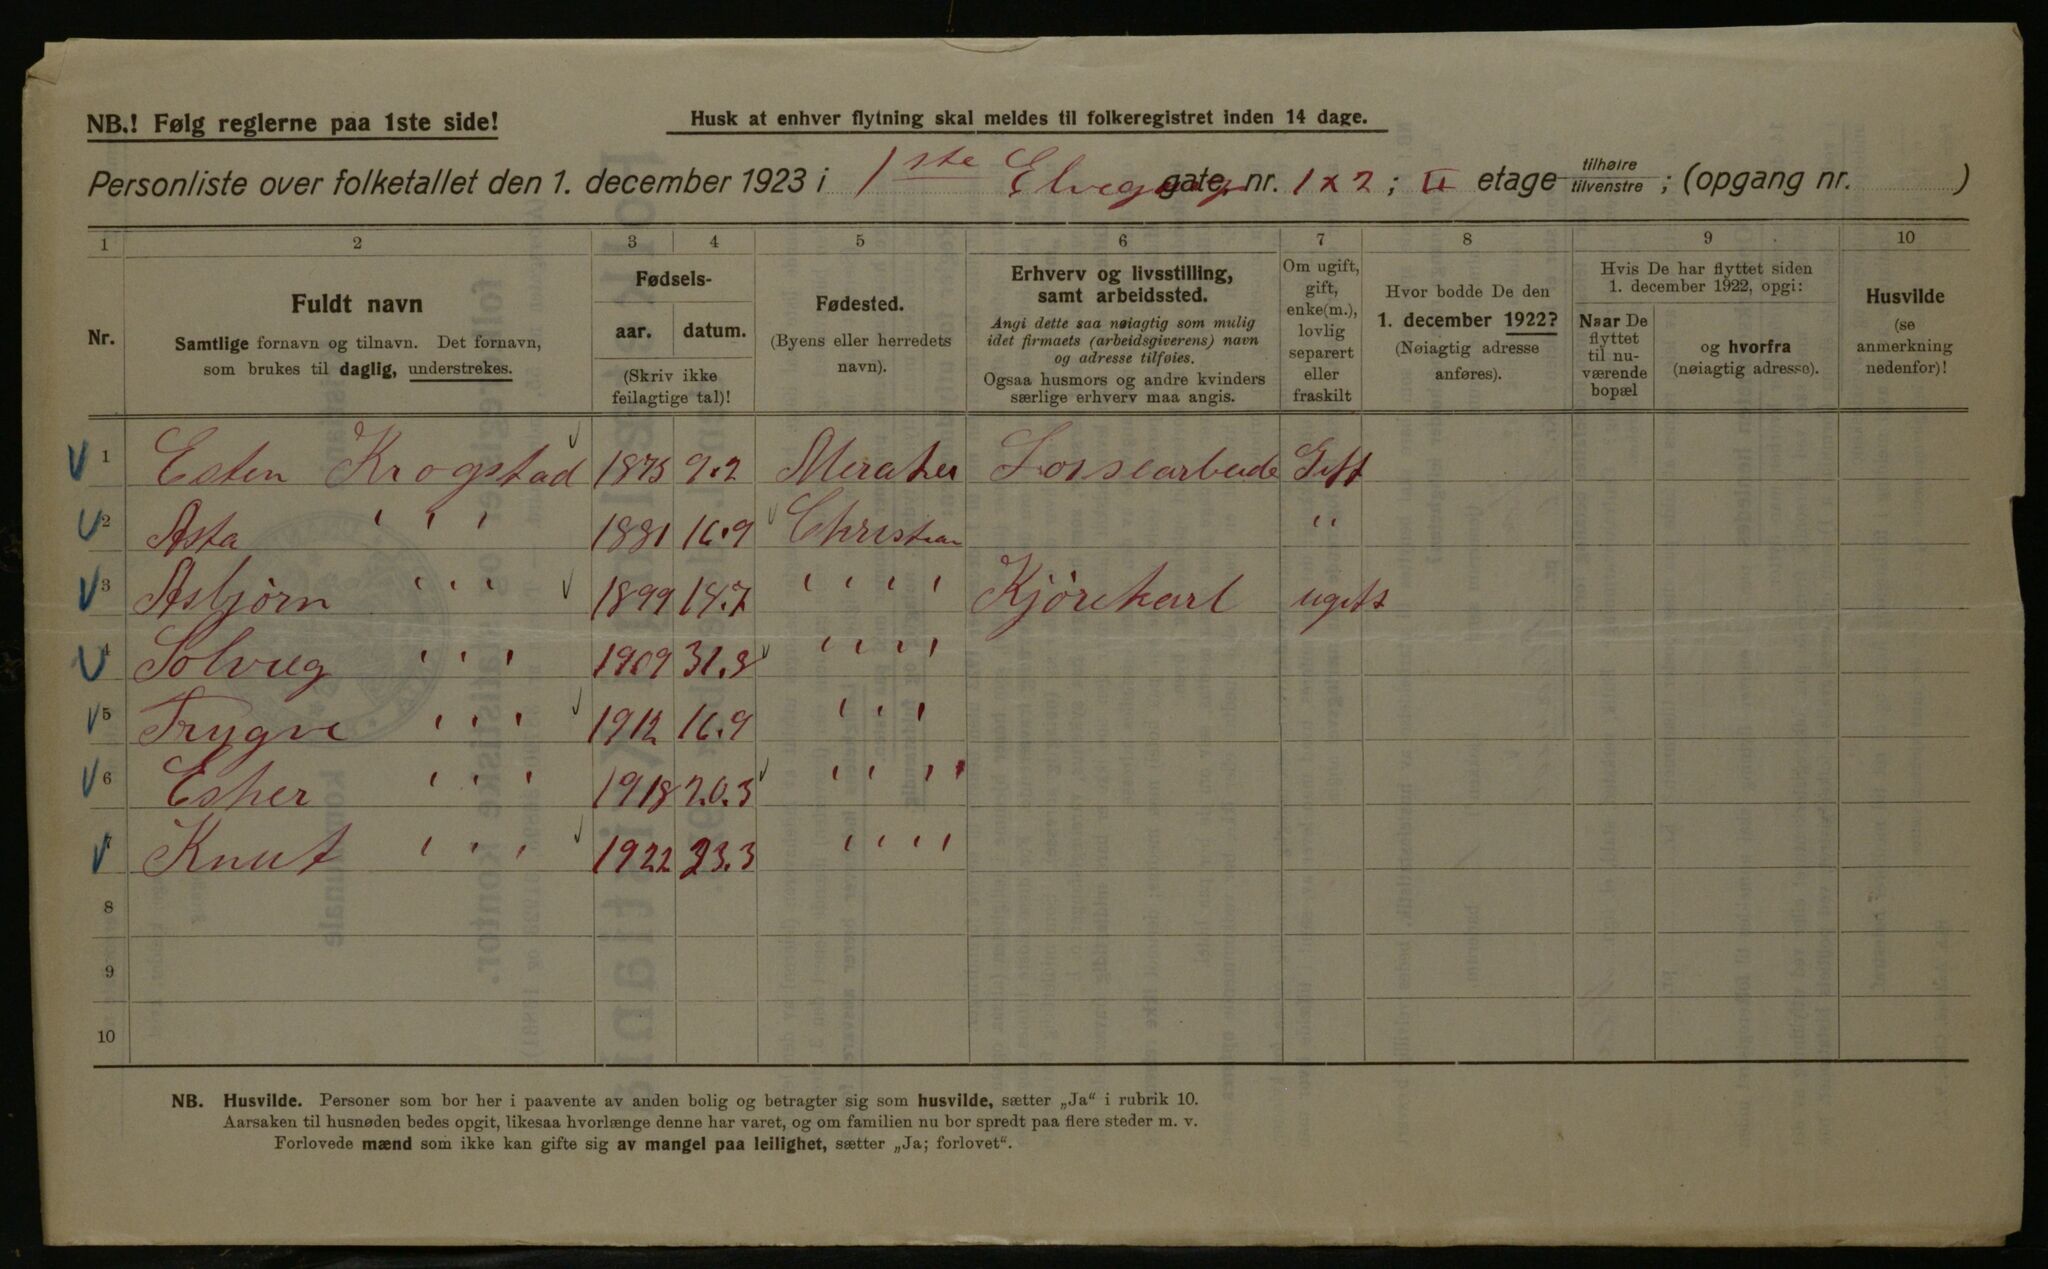 NB.! Følg reglerne paa 1ste side!
Husk at enhver flytning skal meldes til folkeregistret inden 14 dage.
Personliste over folketallet den 1. december 1923 i 1ste Elvegang gate, nr. 1 x 2; II etage tilhøire tilvenstre; (opgang nr. )
1 2 3 4 5 6 7 8 9 10
Nr.
Fuldt navn
Samtlige fornavn og tilnavn. Det fornavn,
som brukes til daglig, understrekes.
Fødsels-
aar. datum.
(Skriv ikke
feilagtige tal)!
Fødested.
(Byens eller herredets
navn).
Erhverv og livsstilling,
samt arbeidssted.
Angi dette saa nøiagtig som mulig
idet firmaets (arbeidsgiverens) navn
og adresse tilføies.
Ogsaa husmors og andre kvinders
særlige erhverv maa angis.
Om ugift,
gift,
enke(m.),
lovlig
separert
eller
fraskilt
Hvor bodde De den
1. december 1922?
(Nøiagtig adresse
anføres).
Hvis De har flyttet siden
1. december 1922, opgi:
Naar De
flyttet
til nu-
værende
bopæl
og hvorfra
(nøiagtig adresse).
Husvilde
(se
anmerkning
nedenfor)!
1 Esten Krogstad 1875 9.2 Meraker Lossearbeide Gift
2 Asta " " " 1881 16.9 Christian "
3 Asbjørn " " " 1899 14.7 " " " " Kjørekarl ugift
4 Solveig " " " 1909 31.3 " " " "
5 Trygve " " " 1912 16.9 " " "
6 Esther " " " 1918 20.3 " " " "
7 Knut " " " 1922 23.3 " " " "
8
9
10
NB. Husvilde. Personer som bor her i paavente av anden bolig og betragter sig som husvilde, sætter „Ja“ i rubrik 10.
Aarsaken til husnøden bedes opgit, likesaa hvorlænge denne har varet, og om familien nu bor spredt paa flere steder m. v.
Forlovede mænd som ikke kan gifte sig av mangel paa leilighet, sætter „Ja; forlovet“.